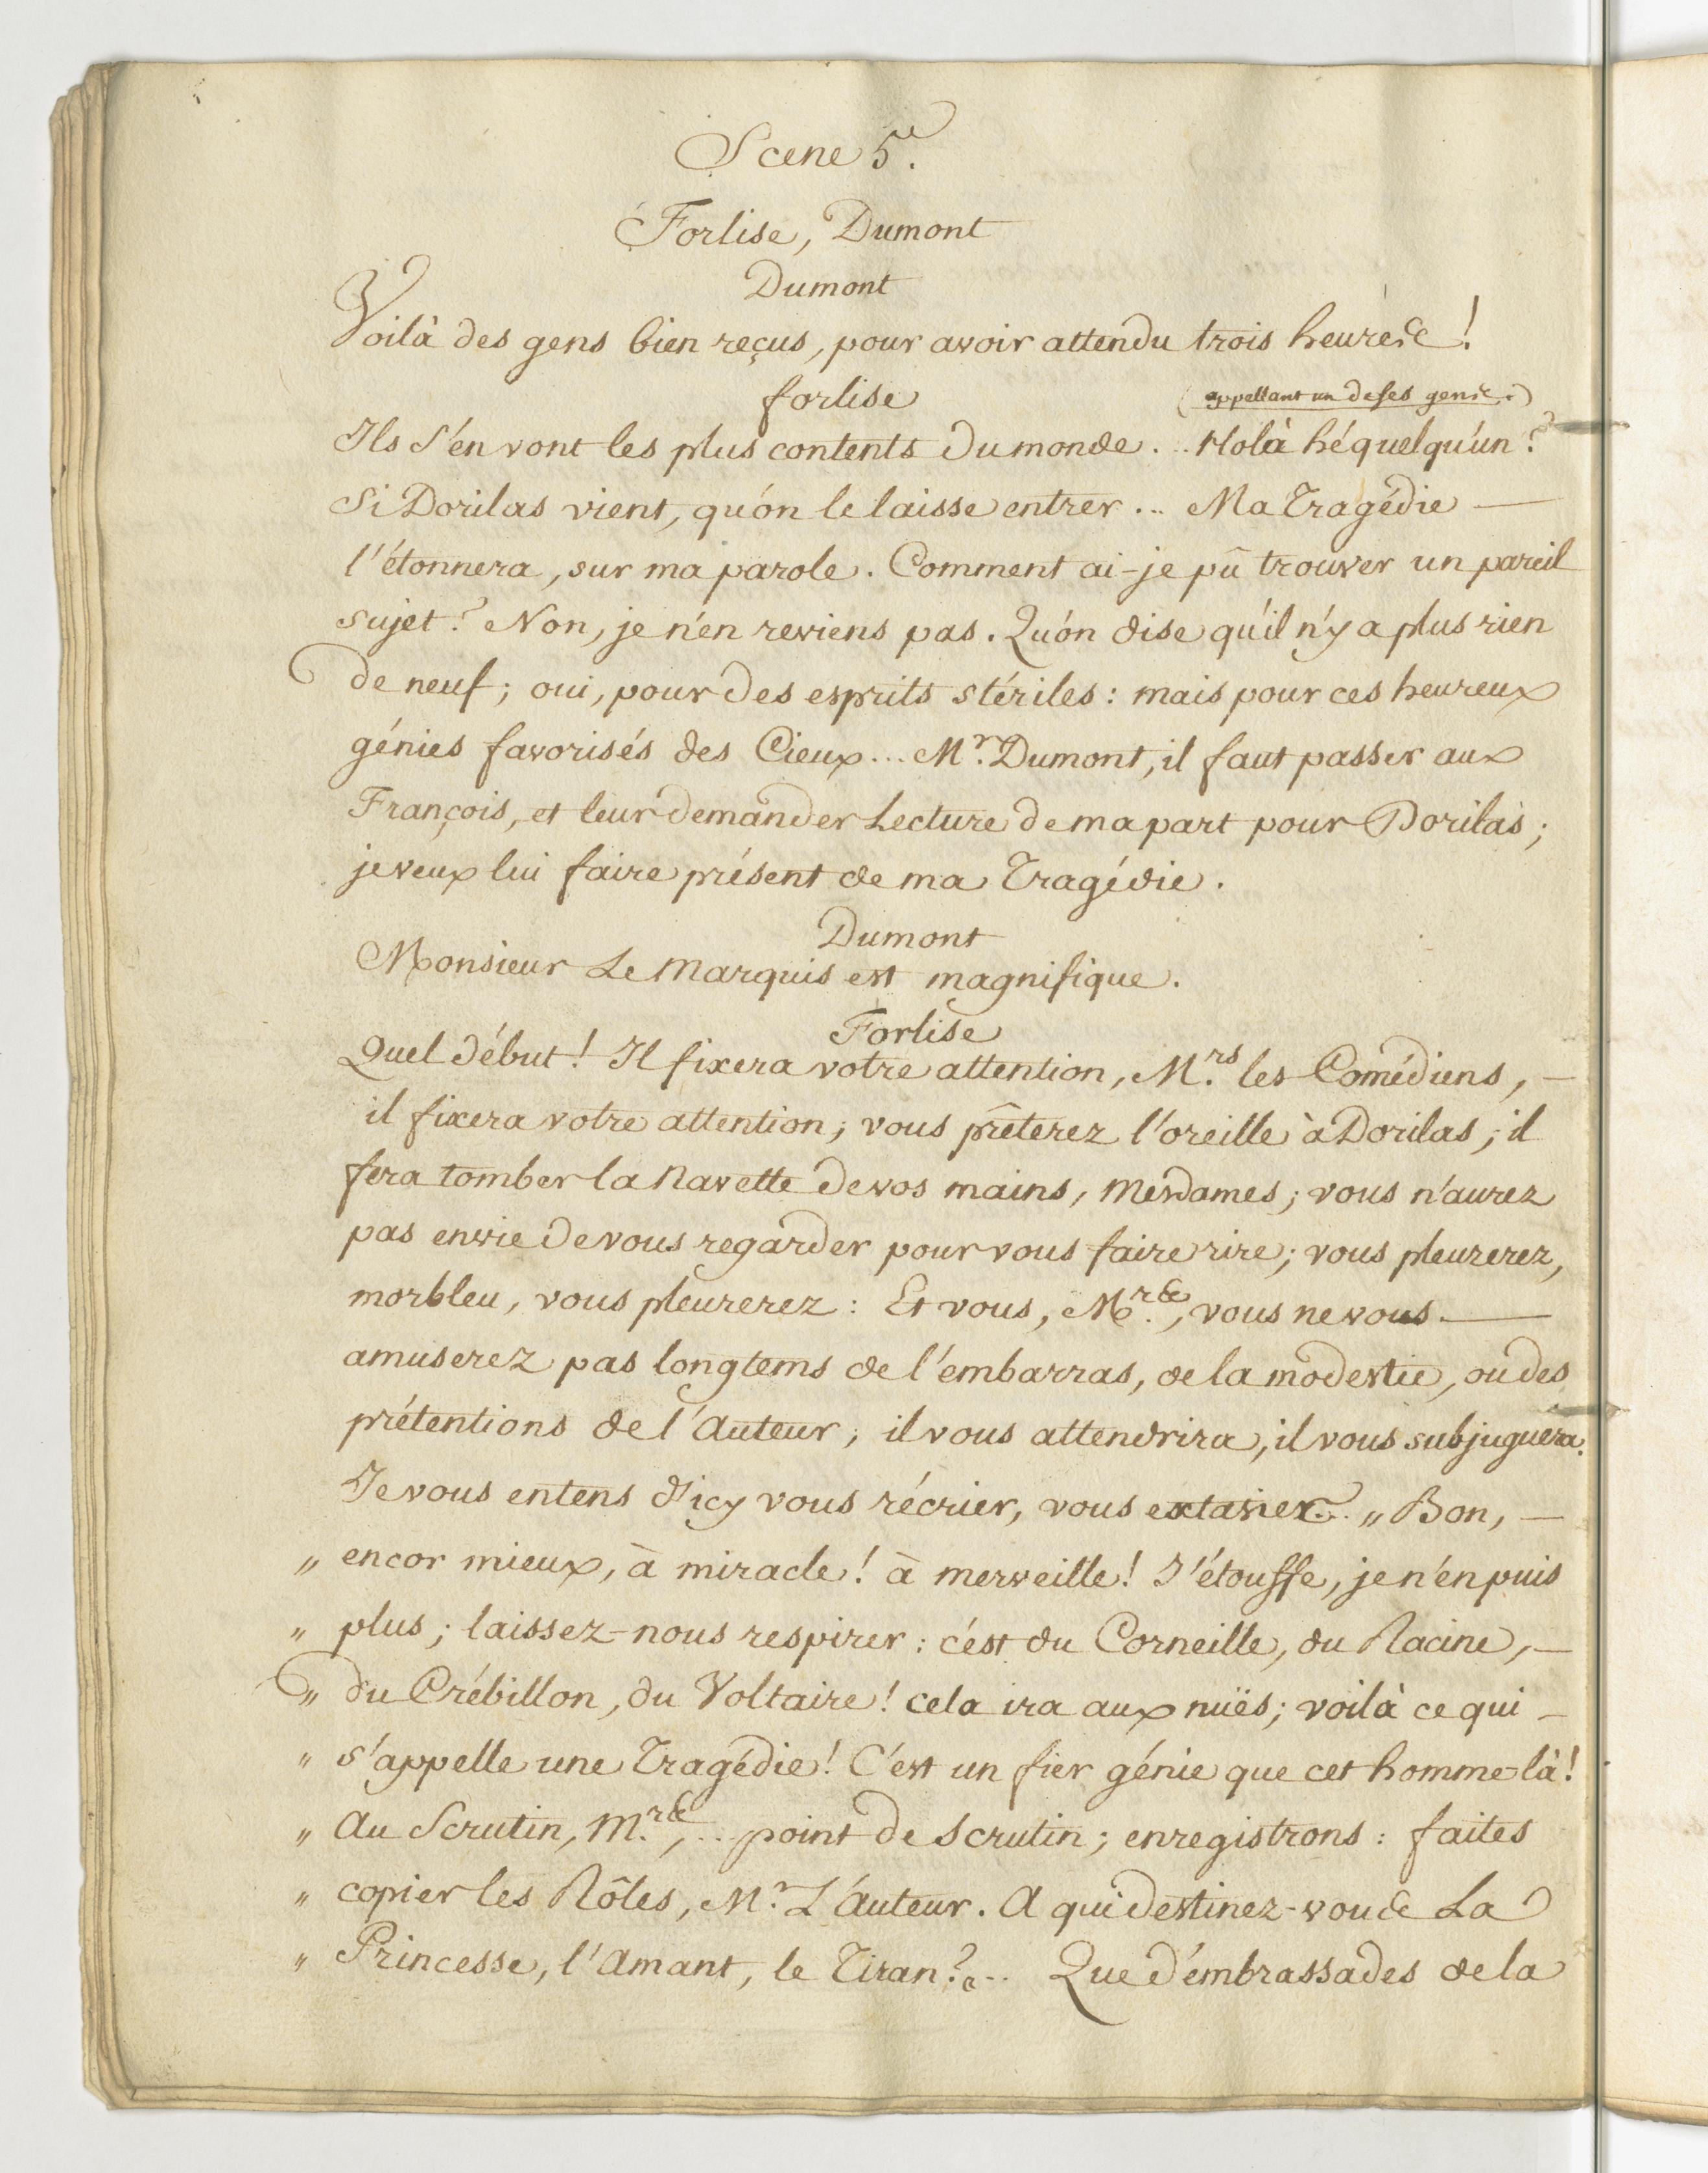 Scene 5.e
Forlise, Dumont
Dumont
Voilà des gens bien reçus, pour avoir attendu trois heures!
forlise
(appellant un de ses gens.)
Ils s'en vont les plus contents du monde... Holà hé quelqu'un?
Si Dorilas vient, qu'on le laisse entrer... Ma Tragédie —
l'étonnera, sur ma parole. Comment ai-je pû trouver un pareil
sujet? Non, je n'en reviens pas. Qu'on dise qu'il n'y a plus rien
de neuf; oui, pour des esprits stériles: mais pour ces heureux
génies favorisés des Cieux... Mr. Dumont, il faut passer aux
François, et leur demander Lecture de ma part pour Dorilas;
je veux lui faire présent de ma Tragédie.
Dumont
Monsieur Le Marquis est magnifique.
Forlise
Quel début! Il fixera votre attention, M.rs les Comédiens, —
il fixera votre attention; vous prêterez l'oreille à Dorilas; il
fera tomber la Navette de vos mains, Mesdames; vous n'aurez
pas envie de vous regarder pour vous faire rire; vous pleurerez,
morbleu, vous pleurerez: Et vous, M.rs, vous ne vous —
amuserez pas longtems de l'embarras, de la modestie, ou des
prétentions de l'Auteur; il vous attendrira, il vous subjuguera.
Je vous entens d'icy vous récrier, vous extasier... „ Bon, —
„ encor mieux, à miracle! à merveille! J'étouffe, je n'en puis
„ plus; laissez-nous respirer: c'est du Corneille, du Racine, —
„ du Crébillon, du Voltaire! cela ira aux nuës; voilà ce qui —
„ s'appelle une Tragédie! C'est un fier génie que cet homme-là!
„ Au Scrutin, M.rs,... point de Scrutin; enregistrons: faites
„ copier les Rôles, Mr. L'auteur. A qui destinez-vous La
„ Princesse, l'Amant, le Tiran?„... Que d'émbrassades de la